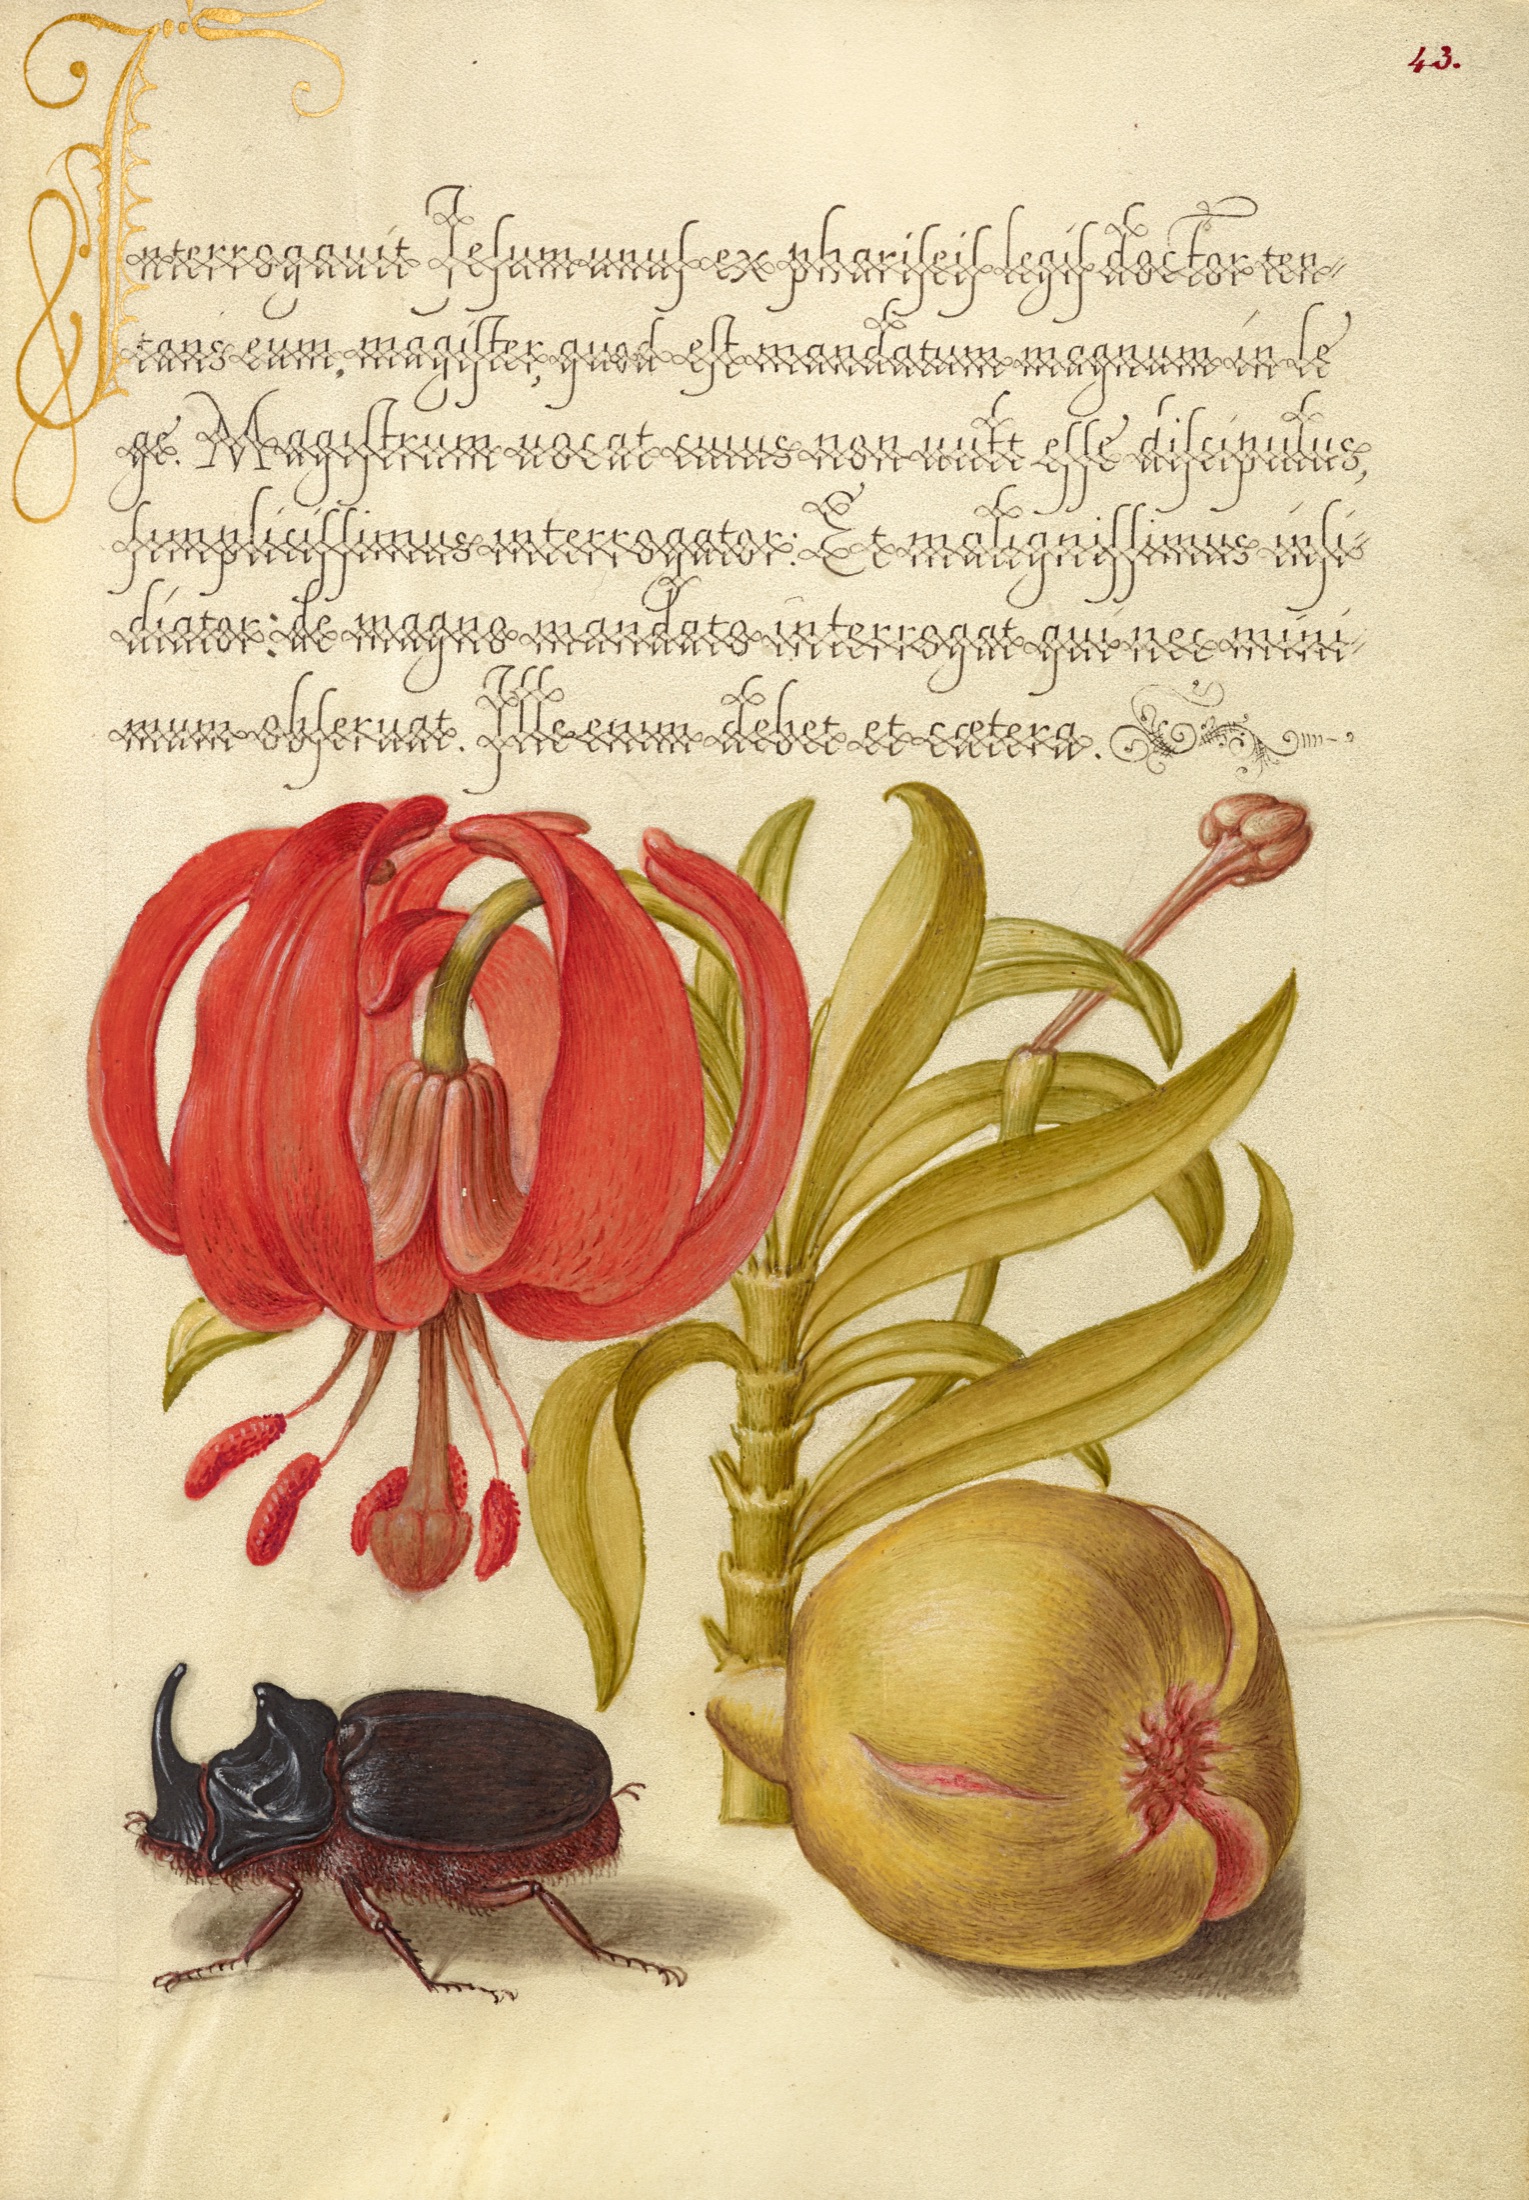 43.
Interrogauit Iesum unus ex phariseis legis doctor ten-
tans eum, magister, quod est mandatum magnum in le
ge. Magistrum uocat cuius non uult esse discipulus,
simplicissimus interrogator: Et malignissimus insi-
diator: de magno mandato interrogat qui nec mini-
mum obseruat. Ille enim debet et cætera.